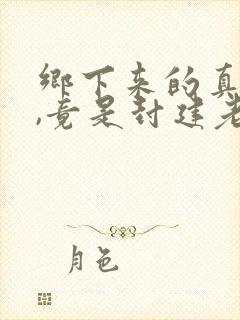 鄉下來的真
,竟是封建老
月色